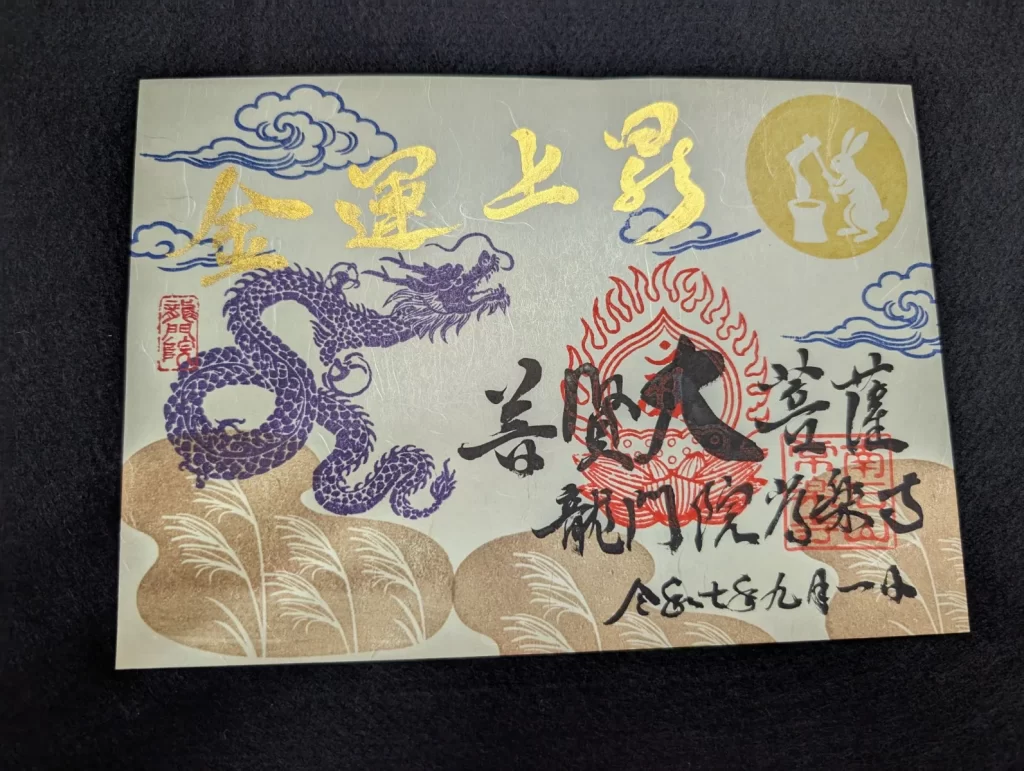 金運上昇
龍門院
普賢大菩薩
龍門院常楽寺
令和七年九月一日